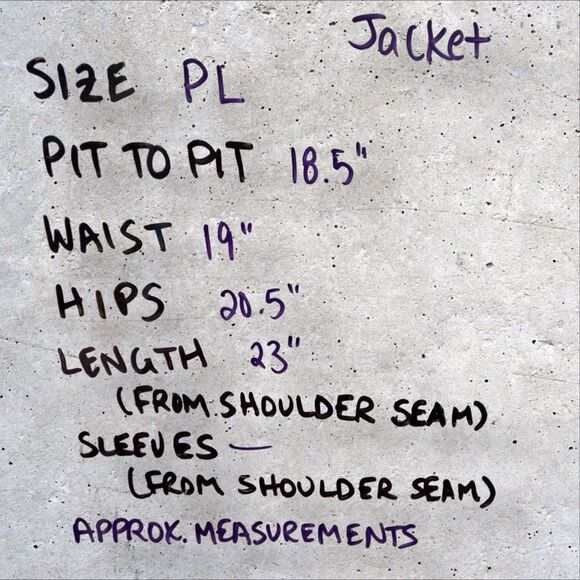 Jacket
SIZE PL
PIT TO PIT 18.5"
WAIST 19"
HIPS 20.5"
LENGTH 23"
(FROM SHOULDER SEAM)
SLEEVES —
(FROM SHOULDER SEAM)
APPROX. MEASUREMENTS